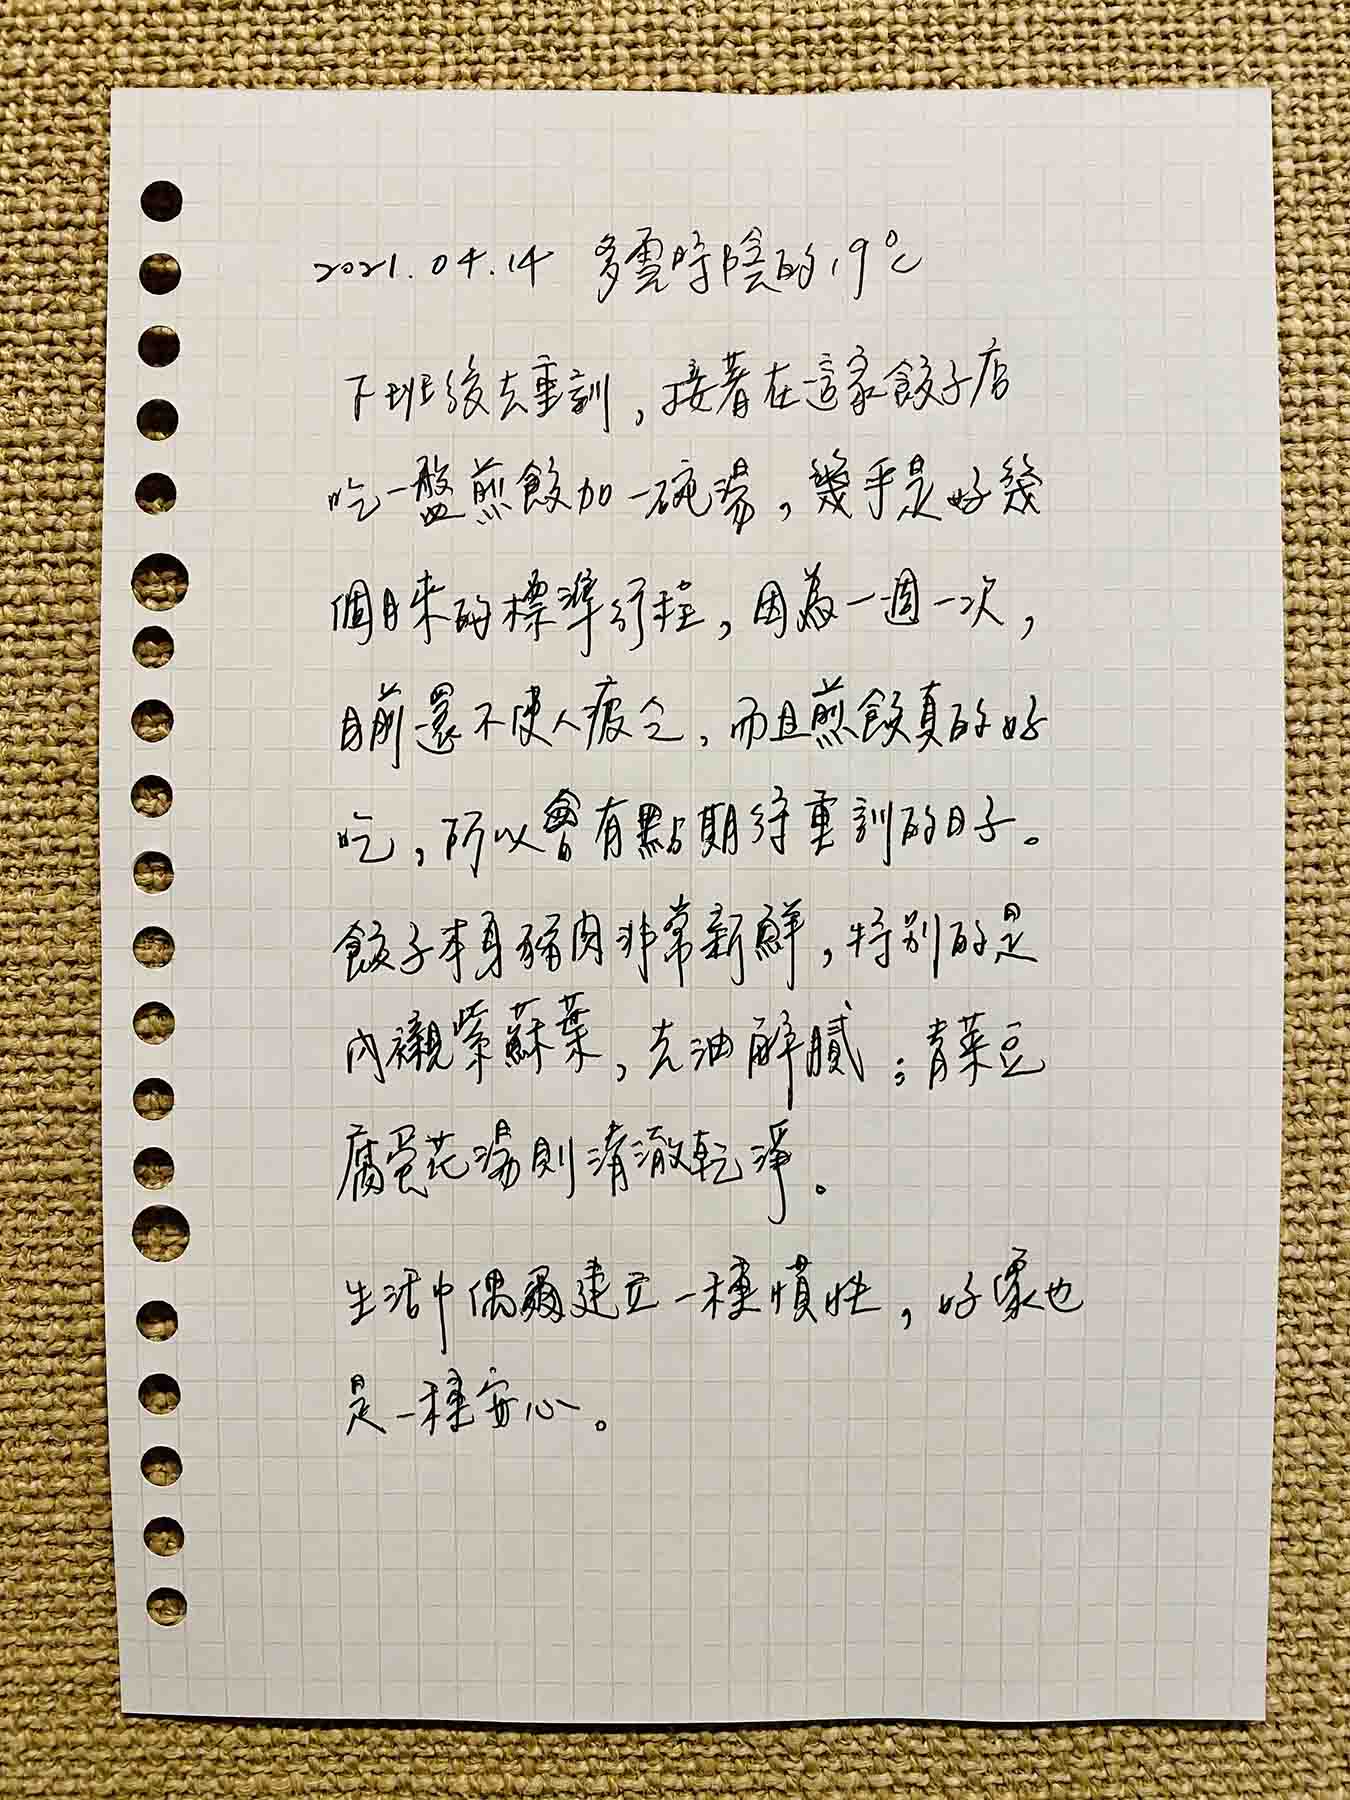 2021.04.14 多雲時陰的19℃
下班後去重訓，接著在這家餃子店
吃一盤煎餃加一碗湯，幾乎是好幾
個月來的標準行程，因為一週一次，
目前還不使人疲乏，而且煎餃真的好
吃，所以會有點期待重訓的日子。
餃子本身豬肉非常新鮮，特別的是
內襯紫蘇葉，去油解膩；青菜豆
腐蛋花湯則清澈乾淨。
生活中偶爾建立一種慣性，好像也
是一種安心。